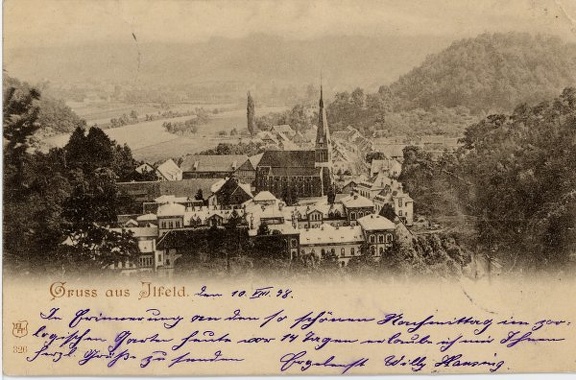 Gruss aus Ilfeld. den 10. VIII. 98.
In Erinnerung an den so schönen Nachmittag im zoo-
logischen Garten heute vor 14 Tagen erlaube ich mir Ihnen
herzl. Grüße zu senden Ergebenst Willy
326